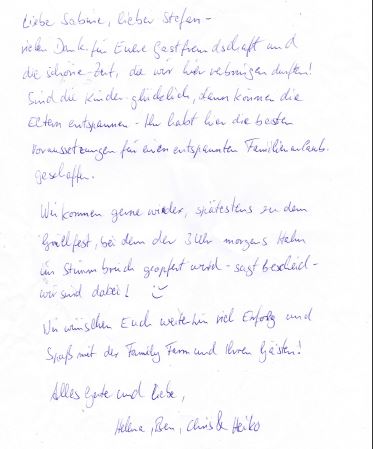 Liebe Sabine, lieber Stefan -
vielen Dank für Eure Gastfreundschaft und
die schöne Zeit, die wir hier verbringen durften!
Sind die Kinder glücklich, dann können die
Eltern entspannen - Ihr habt hier die besten
Voraussetzungen für einen entspannten Familienurlaub
geschaffen.
Wir kommen gerne wieder, spätestens zu dem
Grillfest, bei dem der 3 Uhr morgens Hahn
im Stimmbruch geopfert wird - sagt Bescheid -
wir sind dabei!
Wir wünschen Euch weiterhin viel Erfolg und
Spaß mit der Family Farm und Ihren Gästen!
Alles Gute und Liebe,
Helena, Ben, Chris & Heiko